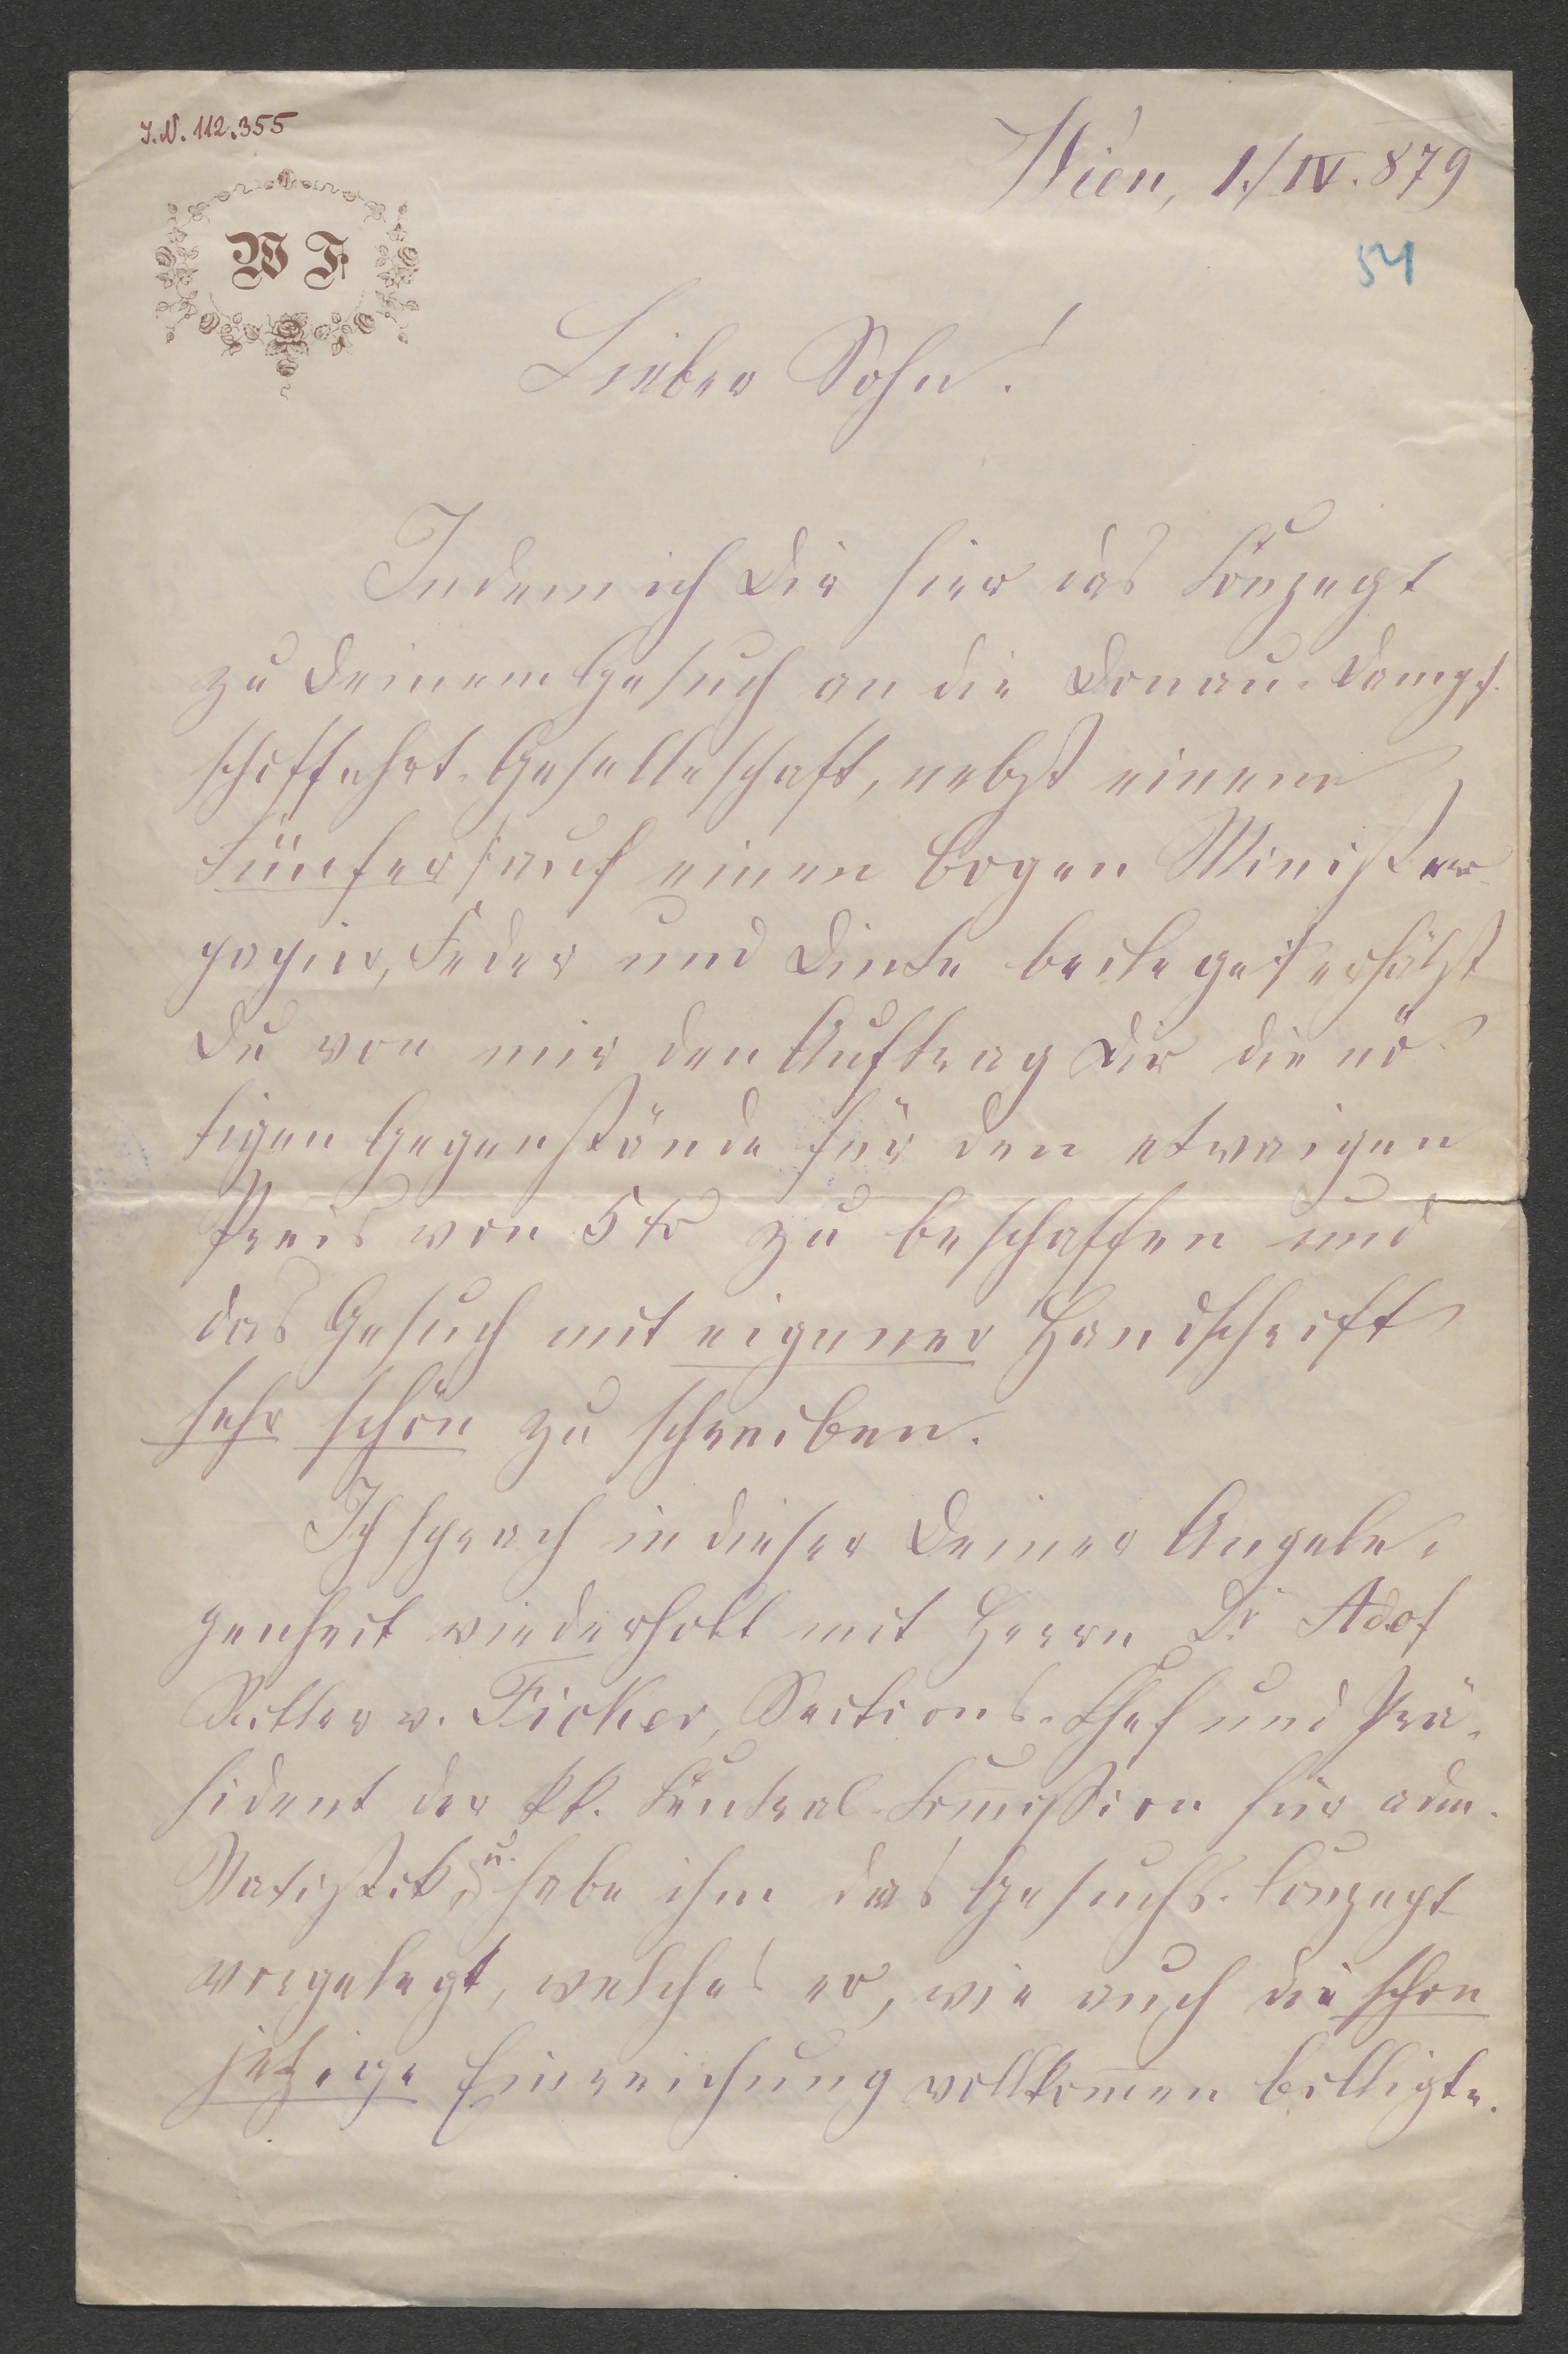 I.N. 112.355
Wien, 1./IV. 879
54
W F
Lieber Sohn!
Indem ich Dir hier das Conzept
zu Deinem Gesuch an die Donau-Dampf-
schifffahrt-Gesellschaft, nebst einem
Fünfer /:auf einen Bogen Minister-
papier, Feder und Dinte beilege:/ erhälst
Du von mir den Auftrag Dir die nö-
tigen Gegenstände für den etwaigen
Preis von 5 xr zu beschaffen und
das Gesuch mit eigener Handschrift
sehr schön zu schreiben.
Ich sprach in dieser Deiner Angele-
genheit wiederholt mit Herrn Dr Adof
Ritter v. Ficker, Sections-Chef und Prä-
sident der kk. Central-Comission für adm.
Statistik u. habe ihm das Gesuchs-Conzept
vorgelegt, welches er, wie auch die schon
jetzige Einreichung vollkomen billigte.